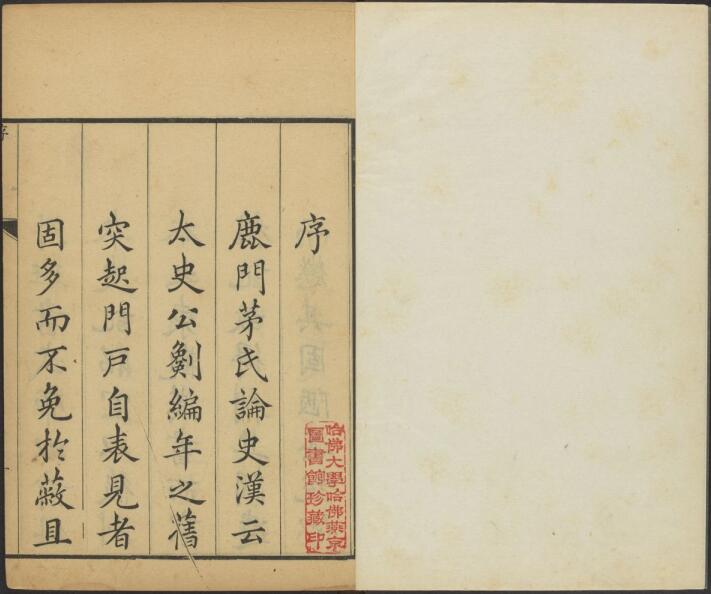 序
鹿門茅氏論史漢云
太史公劖編年之舊
突起門戸自表見者
固多而不免於蔽且
哈佛大學哈佛燕京
圖書館珍藏印
序